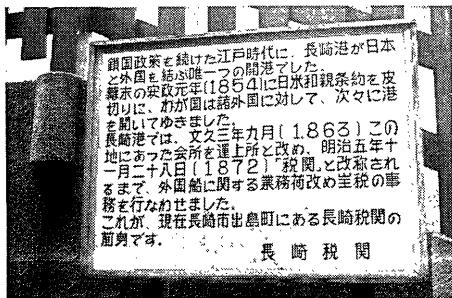 鎖国政策を続けた江戸時代に、長崎港が日本
と外国を結ぶ唯一つの開港でした。
幕末の安政元年(1854)に日米和親条約を皮
切りに、わが国は諸外国に対して、次々に港
を開いてゆきました。
長崎港では、文久三年九月(1863)この
地にあった会所を運上所と改め、明治五年十
一月二十八日(1872)「税関」と改称され
るまで、外国船に関する業務荷改め主税の事
務を行なわせました。
これが、現在長崎市出島町にある長崎税関の
前身です。
長崎税関